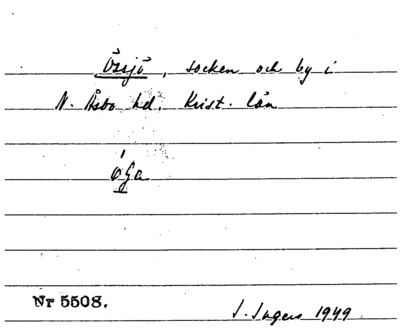 Össjö, socken och by i
N. Åsbo hd, Krist. län
Nr 5508.
S. Ingers 1949